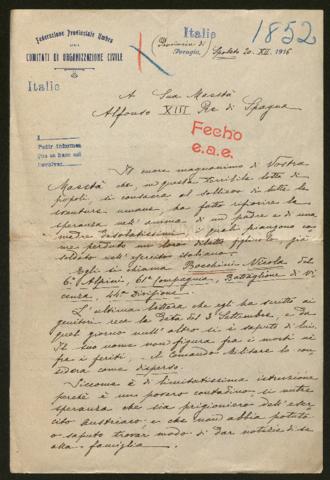 Federazione Provinciale Umbra
DEI
COMITATI DI ORGANIZZAZIONE CIVILE
Italie
Italie
(Provincia di
Perugia)
1852
Spoleto 20. XII. 1916
A Sua Maestà
Alfonso XIII Re di Spagna
Fecho
e.a.e.
Pedir informes
Il cuore magnanimo di Vostra
Maestà che, in questa terribile lotta di
popoli, si consacra al sollievo di tutte le
sventure umane, ha fatto rifiorire la
speranza nell'anima di un padre e di una
madre desolatissimi i quali piangono co-
me perduto un loro diletto figliuolo, già
soldato nell'esercito italiano.
Egli si chiama Bocchini Nicola del
6° Alpini, 61a Compagnia, Battaglione di Vi-
cenza, 44a Divisione.
L'ultima lettera che egli ha scritto ai
genitori reca la data del 3 Settembre, e da
quel giorno null'altro si è saputo di lui.
Il suo nome non figura fra i morti nè
fra i feriti, il Comando Militare lo con-
sidera come disperso.
Siccome è di limitatissima istruzione
perchè è un povero contadino, si nutre
speranza che sia prigioniero dell'eser-
cito Austriaco e che non abbia potuto
o saputo trovar modo di dar notizie di se
alla famiglia.